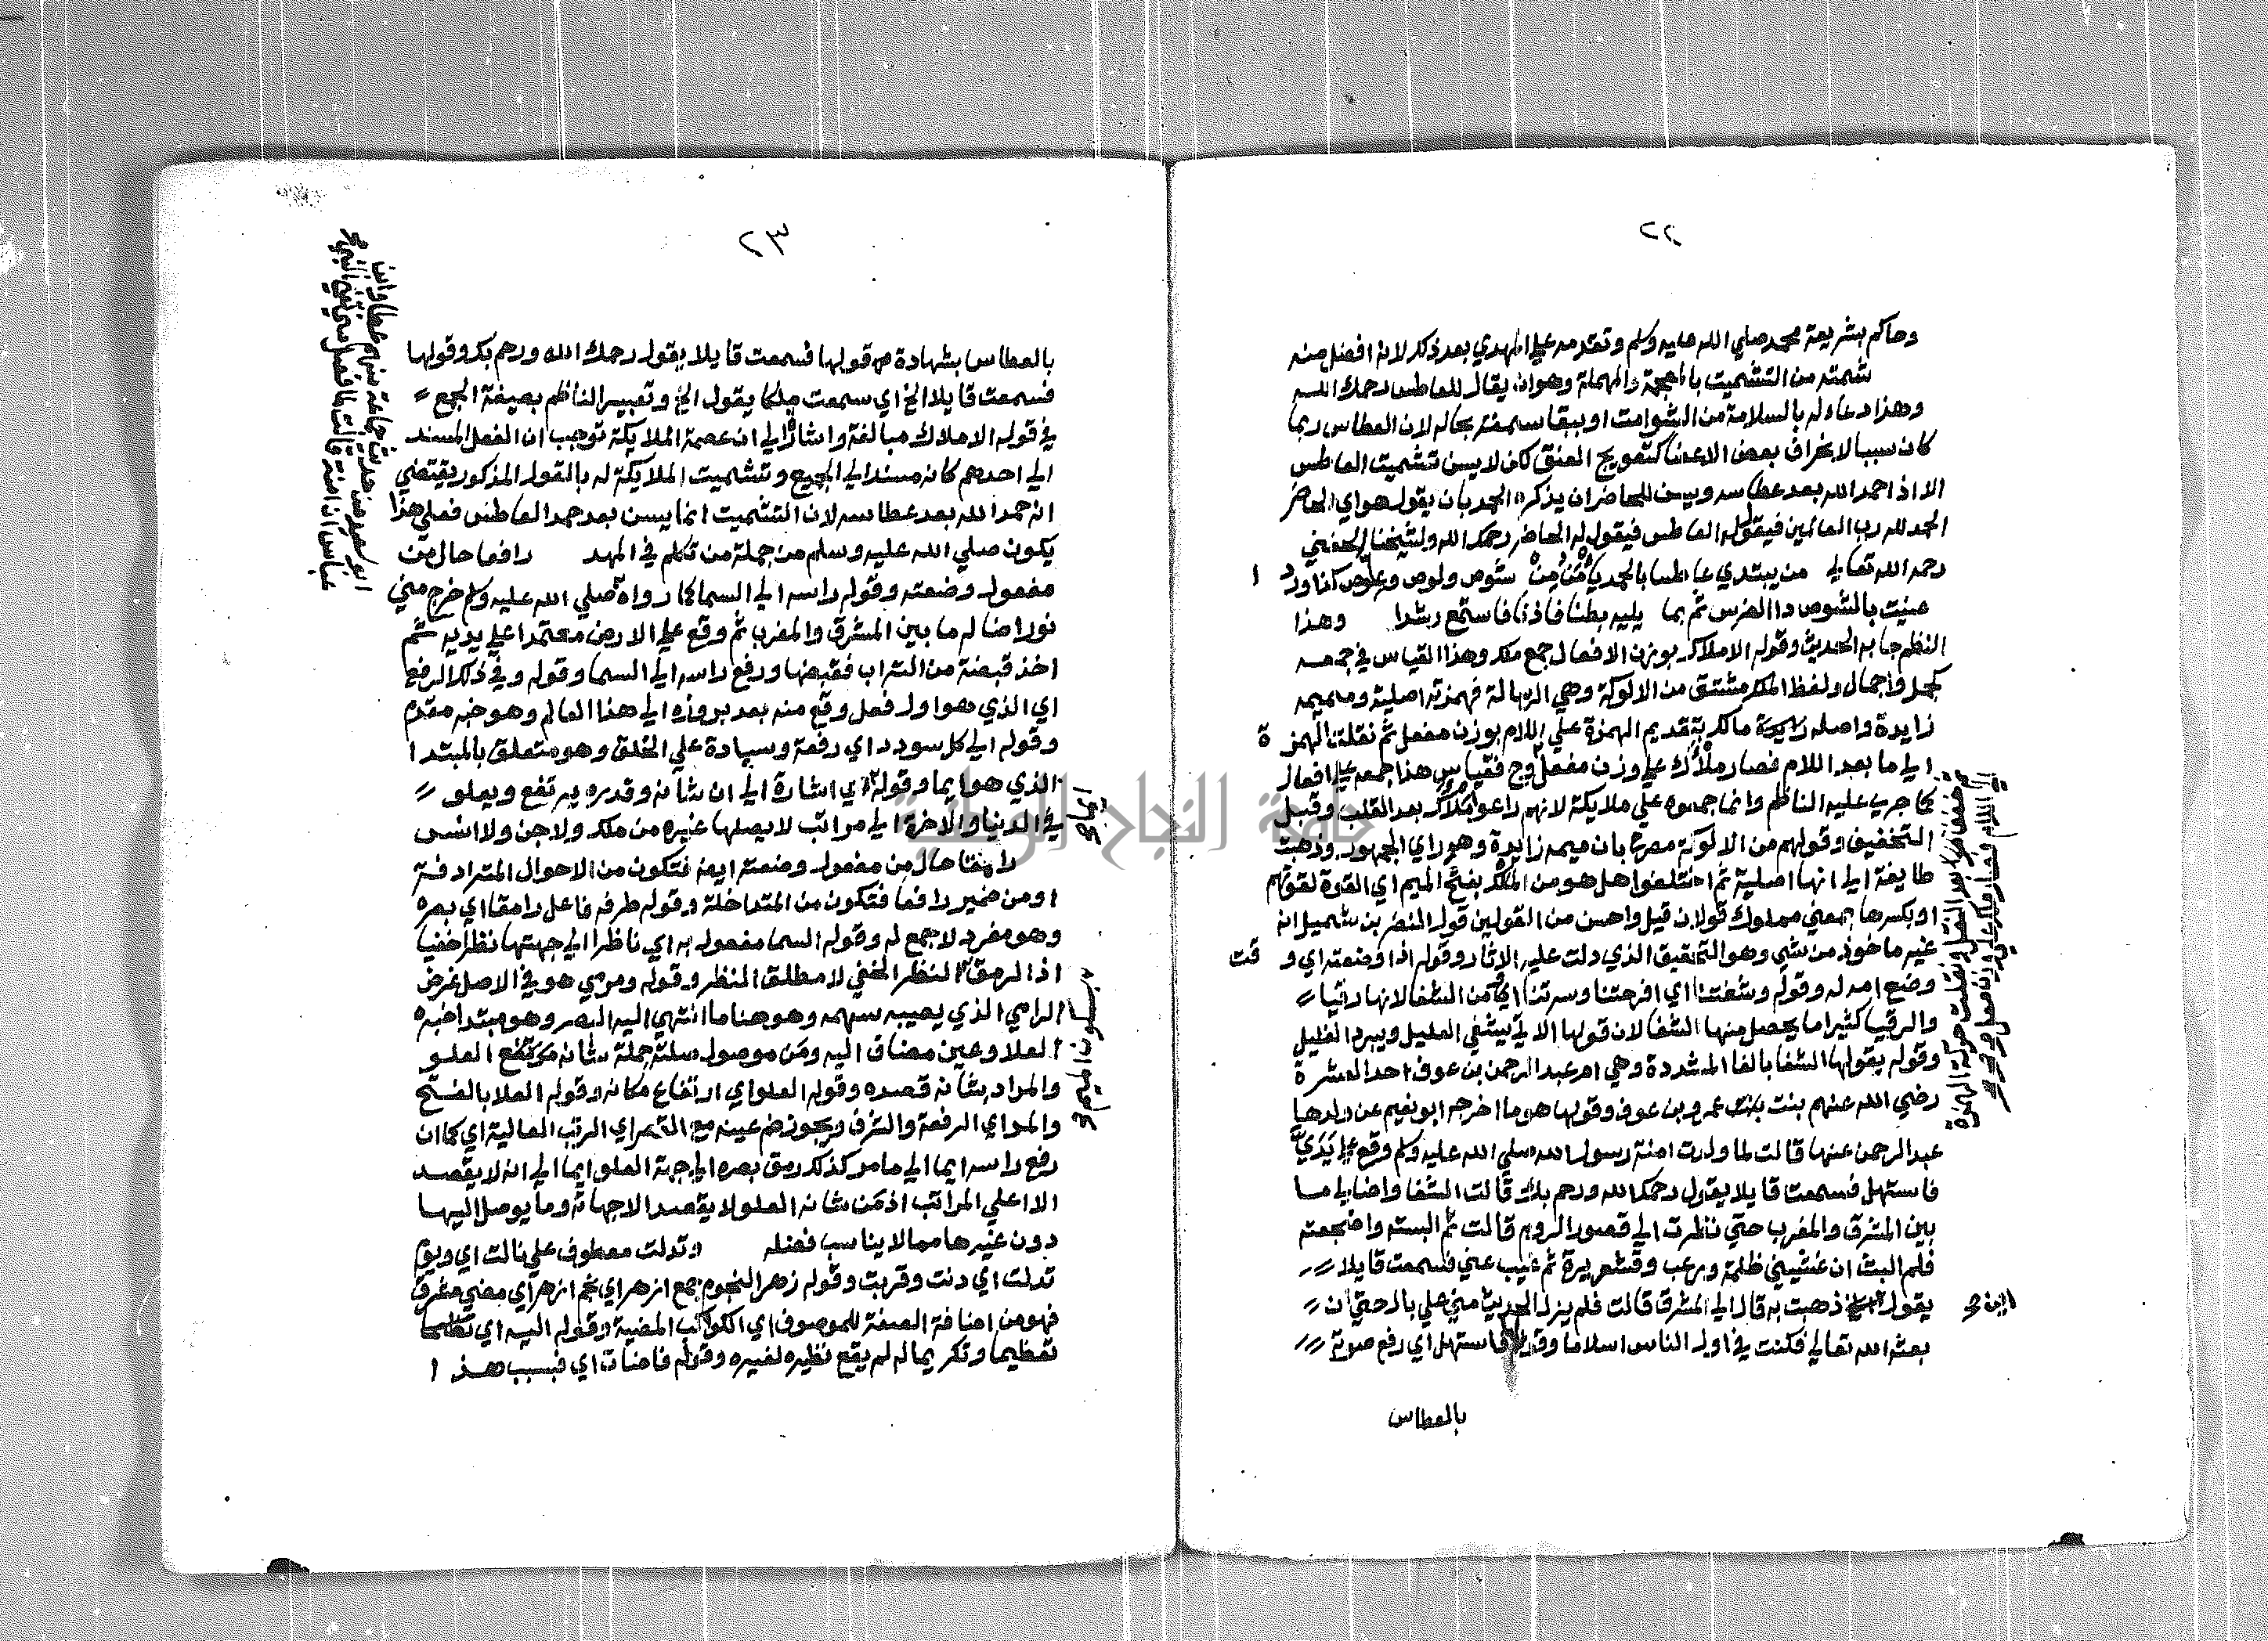 ٢٢
وحاكم بشريعة محمد صلي الله عليه وسلم وتقدمه علي المهدي بعد ذلك لانه افضل منه
شمته من التشميت بالمعجمة والمهملة وهو ان يقال للعاطس رحمك الله
وهذا دعاء له بالسلامة من الشوامت او ببقا سمته بحاله لان العطاس ربما
كان سببا لانحراف بعض الاعضا كتعويج العنق لكن لا يسن تشميت العاطس
الا اذا حمد الله بعد عطاسه ويسن للحاضر ان يذكره الحمد بان يقول هو اي الحاضر
الحمد لله رب العالمين فيقول العاطس فيقول له الحاضر رحمك الله ولشيخنا الحفني
رحمه الله تعالي من يبتدي عاطسا بالحمد يأمن من شوص ولوص وعلوص كذا وردا
عنيت بالشوص دا الضرس ثم بما يليه بطنا فاذنا فاستمع رشدا وهذا
النظم جا به الحديث وقوله الاملاك بوزن الافعال جمع ملك وهذا القياس في جمعه
كجمل واجمال ولفظ الملك مشتق من الالوكة وهي الرسالة فهمزته اصلية وميمه
زايدة واصله مالك بتقديم الهمزة علي اللام بوزن مفعل ثم نقلت الهمزة
الي ما بعد اللام فصار ملأك علي وزن مفعل وح فقياس هذا جمعه علي افعال
كما جري عليه الناظم وانما جمعوه علي ملايكة لانهم راعوا ملأك بعد القلب وقبل
التخفيف وقولهم من الالوكة مصرحا بان ميمه زايدة وهو راي الجمهور وذهبت
طايفة الي انها اصلية ثم اختلفوا هل هو من الملك بفتح الميم اي القوة لقوتهم
او بكسرها بمعني مملوك قولان قيل واحسن من القولين قول النضر بن شميل انه
غير ماخوذ من شي وهو التحقيق الذي دلت عليه الاثار وقوله اذا وضعته اي وقت
وضع امه له وقوله وشفتنا اي افرحتنا وسرتنا اي من الشفا لانها رقيا
والرقيا كثيرا ما يحصل منها الشفا لان قولها الاتي يشفي العليل ويبرد الغليل
وقوله بقولها الشفا بالفا المشددة وهي ام عبد الرحمن بن عوف احد العشرة
رضي الله عنهم بنت عمرو بن عوف وقولها هو ما اخرجه ابو نعيم عن ولدها
عبد الرحمن عنها قالت لما ولدت امنة رسول الله صلي الله عليه وسلم وقع علي يدي
فاستهل فسمعت قايلا يقول رحمك الله ورحم بك قالت الشفا واضا لي ما
بين المشرق والمغرب حتي نظرت الي قصور الروم قالت ثم البسته واضجعته
فلم البث ان غشيتني ظلمة ورعب وقشعريرة ثم غيب عني فسمعت قايلا
يقول اين ذهبت به قال الي المشرق قالت فلم يزل الحديث مني علي بال حتي ان
بعثه الله تعالي فكنت في اول الناس اسلاما وقوله فاستهل اي رفع صوته
بالعطاس
٢٣
بالعطاس بشهادة قولها فسمعت قايلا يقول رحمك الله ورحم بك وقولها
فسمعت قايلا الخ اي سمعت ملكا يقول الخ وتعبير الناظم بصيغة الجمع
في قوله الاملاك مبالغة واشارة الي ان عصمة الملايكة توجب ان الفعل المسند
الي احدهم كانه مسند الي الجميع وتشميت الملايكة له بالقول المذكور يقتضي
انه حمد الله بعد عطاسه لان التشميت انما يسن بعد حمد العاطس فعلي هذا
يكون صلي الله عليه وسلم من جملة من تكلم في المهد رافعا حال من
مفعول وضعته وقوله راسه الي السما كما رواه صلي الله عليه وسلم خرج مني
نورا ضا له ما بين المشرق والمغرب ثم وقع علي الارض معتمدا علي يديه ثم
اخذ قبضة من التراب فقبضها ورفع راسه الي السما وقوله وفي ذلك الرفع
اي الذي هو اول فعل وقع منه بعد بروزه الي هذا العالم وهو خبر مقدم
وقوله الي كل سودد اي رفعة وسيادة علي الخلق وهو متعلق بالمبتدا
الذي هو ايما وقوله اي اشارة الي ان شانه وقدره يرتفع ويعلو
في الدنيا والاخرة الي مراتب لا يصلها غيره من ملك ولا جن ولا انس
رامقا حال من مفعول وضعته ايضا فتكون من الاحوال المترادفة
او من ضمير رافعا فتكون من المتداخلة وقوله طرفه فاعل رامقا اي بصره
وهو مفرد لا جمع له وقوله السما مفعول به اي ناظرا الي جهتها نظرا خفيا
اذ الرمق النظر الخفي لا مطلق النظر وقوله ومرمي هو في الاصل غرض
الرامي الذي يصيبه سهمه وهو هنا ما انتهي اليه البصر وهو مبتدا خبره
العلا وعين مضاف اليه ومن موصول صلته جملة شانه مرتفع العلو
والمراد بشانه قصده وقوله العلو اي ارتفاع مكانه وقوله العلا بالفتح
والمد اي الرفعة والشرف ويجوز ضم عينه مع القصر اي الرتب العالية اي كما ان
رفع راسه ايما الي ما مر كذلك رمق بصره الي جهة العلو ايما الي انه لا يقصد
الا اعلي المراتب اذ من شانه العلو لا يقصد الا جهاته وما يوصل اليها
دون غيرها مما لا يناسب فضله وتدلت معطوف علي نالت اي ويوم
تدلت اي دنت وقربت وقوله زهر النجوم جمع ازهر اي نجم ازهر اي مضي مشرق
فهو من اضافة الصفة للموصوف اي الكواكب المضية وقوله اليه اي
تعظيما وتكريما له لم يقع نظيره لغيره وقوله فاضات اي فبسبب هذا